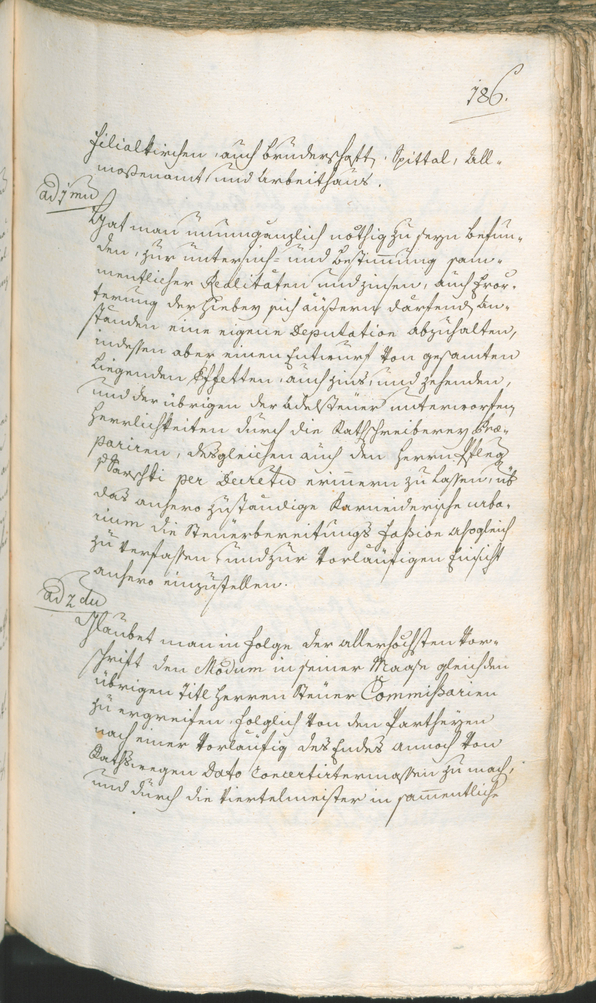 186.
Filialkirchen, auch Bruderschafft, Spittal, All-
moßenamt und Arbeithaus.
ad 1mu
Hat man nunngänzlich nöthig zu seyn befun-
den, zur untersuch- und Bestimung sam-
mentlicher Realitäten und zinsen, auch Erör-
terung der hiebey sich äußern därfend An-
ständen eine eigene Deputation abzuhalten,
indessen aber einen Entwurf von gesamten
Liegenden Effetten, auch zins, und zehenden,
und der übrigen der Adelssteuer unterworfen
Herrlichkeiten durch die Rathschreiberey præ-
pariren, desgleichen auch den Herrn Pfleg
per Decretu erinnern zu lassen, üb
das anhero zuständige Karneidersche urba-
rium die Steuerbereitungs Fassion alsogleich
zu verfassen, und zur vorläufigen Einsicht
anhero einzustellen.
ad 2du
Glaubet man in Folge der allerhöchsten Vor-
schrift den Modum in seiner Maaße gleich den
übrigen Titl Herren Steuer Commissarien
zu ergreifen, folglich von den Partheyen
nach einer vorläufig des Endes annoch von
Rathswegen Dato concertirtermassen zu mach,
und durch die Viertelmeister in sammentliche